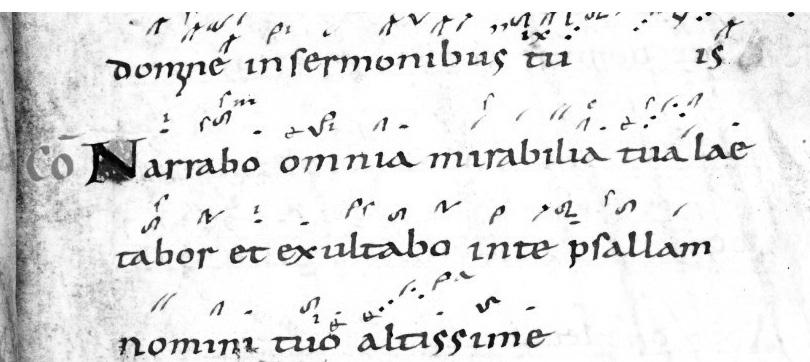 domine in sermonibus tu is
Co Narrabo omnia mirabilia tua lae
tabor et exultabo in te psallam
nomini tuo altissime